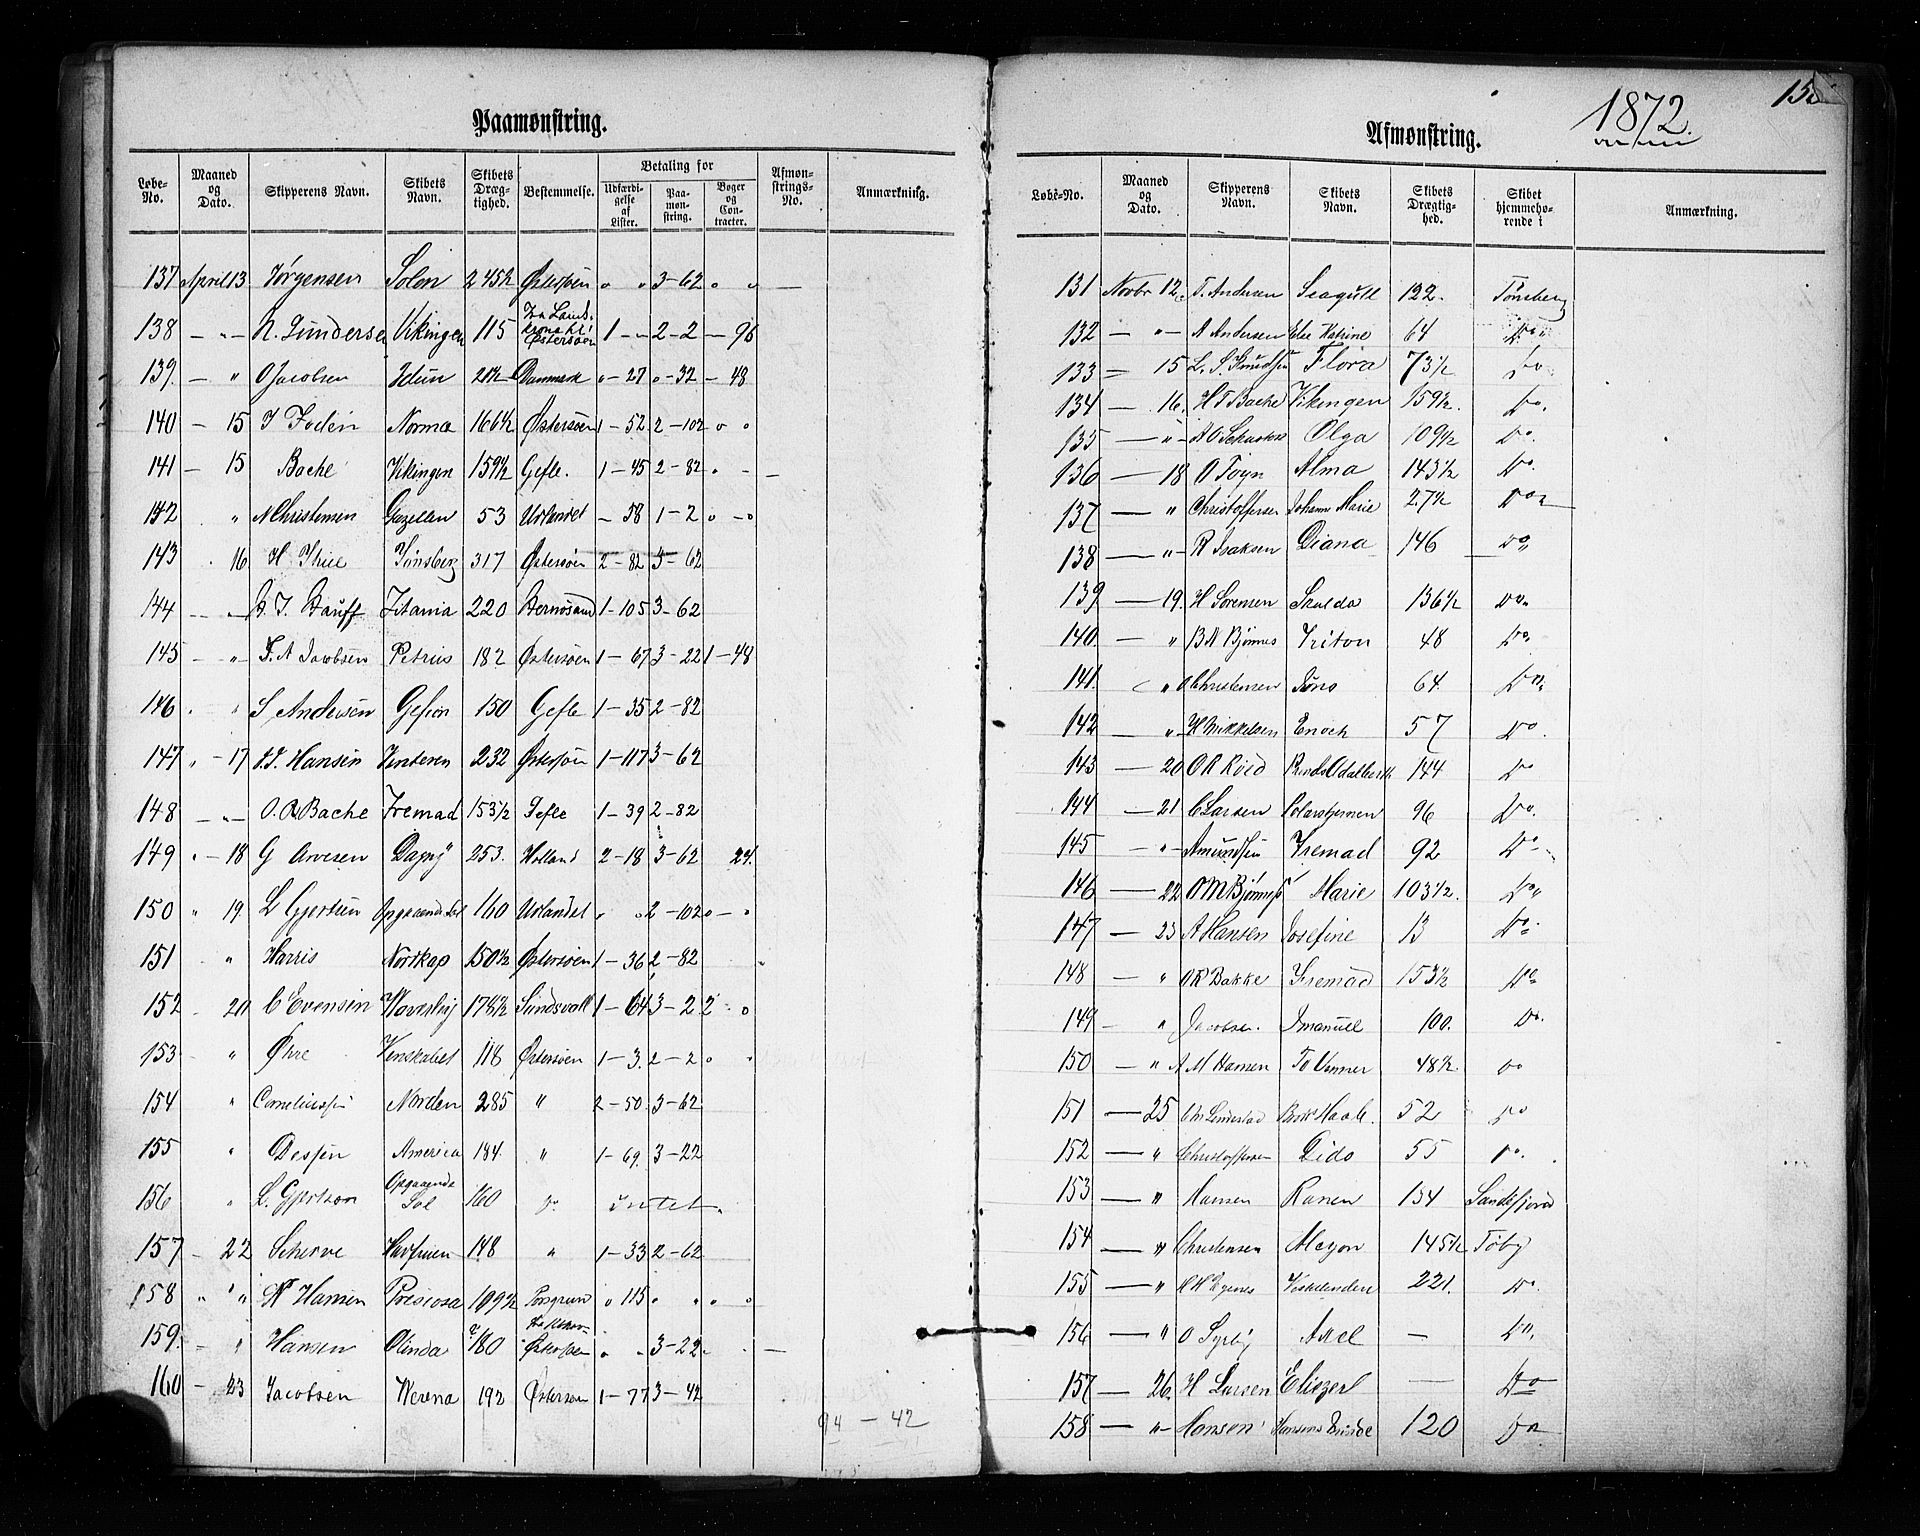 Paamønstring.
Løbe-No. Maaned og Dato. Skipperens Navn. Skibets Navn. Skibets Drægtighed. Bestemmelse. Betaling for Udfærdigelse af Lister. Paamønstring. Bøger og Contracter. Afmønstrings-No. Anmærkning.
137 April 13 Jørgensen Solon 245½ Østersøen " " 3-62 " "
138 — " — N. Gundersen Vikingen 115 Østersøen 1 — " 2-2 — 96
139. — " O Jacobsen Idun 20½ Danmark " - 27 " - 32 - 48
140 — 15 Norma 166½ Østersøen 1-52 2-102 " "
141 — 15 Bache Vikingen 159½ Gefle. 1-45 2-82 " - —
142 " N Christensen Gazellen 53 Udlandet — 58 1-2 " - "
143 . 16 H. Thue Tønsberg 317 Østersøen 2-82 3-62
144 — " Titania 220 Hernøsand 1-105 3-62
145 — " — F. A Jacobsen Petrus 182 Østersøen 1-67 3-22 1-48
146 . " S Andersen Gefion 150 Gefle 1-35 2-82
147 " — 17 Hansen Venteren 232 Østersøen 1-117 3-62
148 — " — O. R Bache Fremad 153½ Gefle 1-39 2-82
149 " — 18 G Arvesen Dagny 253. Holland 2-18 3-62 24.
150 " 19. L Gjertsen Opgaaende Sol 160 Udlandet " " 2-102 " — "
151 " Harris Nordkap 150½ Østersøen 1-36 2-82
152 - 20 C Evensen Waverley 178½ Sundsvall 1-64 3-2 2 - "
153 " Øhre Venskabet 118 Østersøen 1-3. 2-2 " "
154 " Corneliussen Norden 285 " 2-50. 3-62
155 " America 184. " 1-69. 3-22
156 " L. Gjertson Opgaaende Sol 160 do intet.
157 — 22 Scherve Havfruen 148 " 1-33 2-62
158 " " Hansen Presiosa 109½ Porsgrund " 115 " " " "
159. — " Hansen Olinda 180 Østersøen " " 3-22 " - —
160 — 23 Jacobsen Werena 192 Østersøen 1-77 3-42
94 — 42
1872.
Afmønstring.
Løbe-No. Maaned og Dato. Skipperens Navn. Skibets Navn. Skibets Drægtighed. Skibet hjemmehørende i Anmærkning.
131 Novbr 12. T. Andersen Seagull 122. Tønsberg
132 — " — A Andersen Else Katrine 64 Do
133 = 15 L. S. Knudsen Flora 73½ Do
134 — 16. H T Bache Vikingen 159½. Do.
135 — " — Olga 109½ Do.
136 — 18 O Foyn Alma 143½ Do.
137 — " Christoffersen Johann Marie 27½ Do
138 — " — R Isaksen Diana 146 Do
139 — 19. H Sørensen Skulda 136½ Do.
140. — " B A Bjønnes Triton 48 Do.
141. " O Christensen Juno 64. Do.
142 " H Mikkelsen Enoch 57 Do.
143 — 20 O R Røed 144 Do
144 — 21 C Larsen Polarstjernen 96 Do.
145 — " — Amundsen Fremad 92 Do
146 — 22 O M Bjønnes Marie 103½. Do
147 — 23 A Hansen Josefine 13 Do
148 — " O R Bakke Fremad 153½ Do
149 — " Jacobsen. Imanuel 100. Do.
150 — " A M Hansen To Venner 48½. Do
151 — 25 Haab. 52 Do
152 — " Christoffersen Dido 55 Do.
153 — " Hansen Ranen 154 Sandefjord
154 — " Christensen 145½ Do
155 — " 221. Do.
156 — " O Axel — Do.
157 — 26. H Larsen Eliezer — Do
158 — " — Hansen Hansens Minde 120 Do